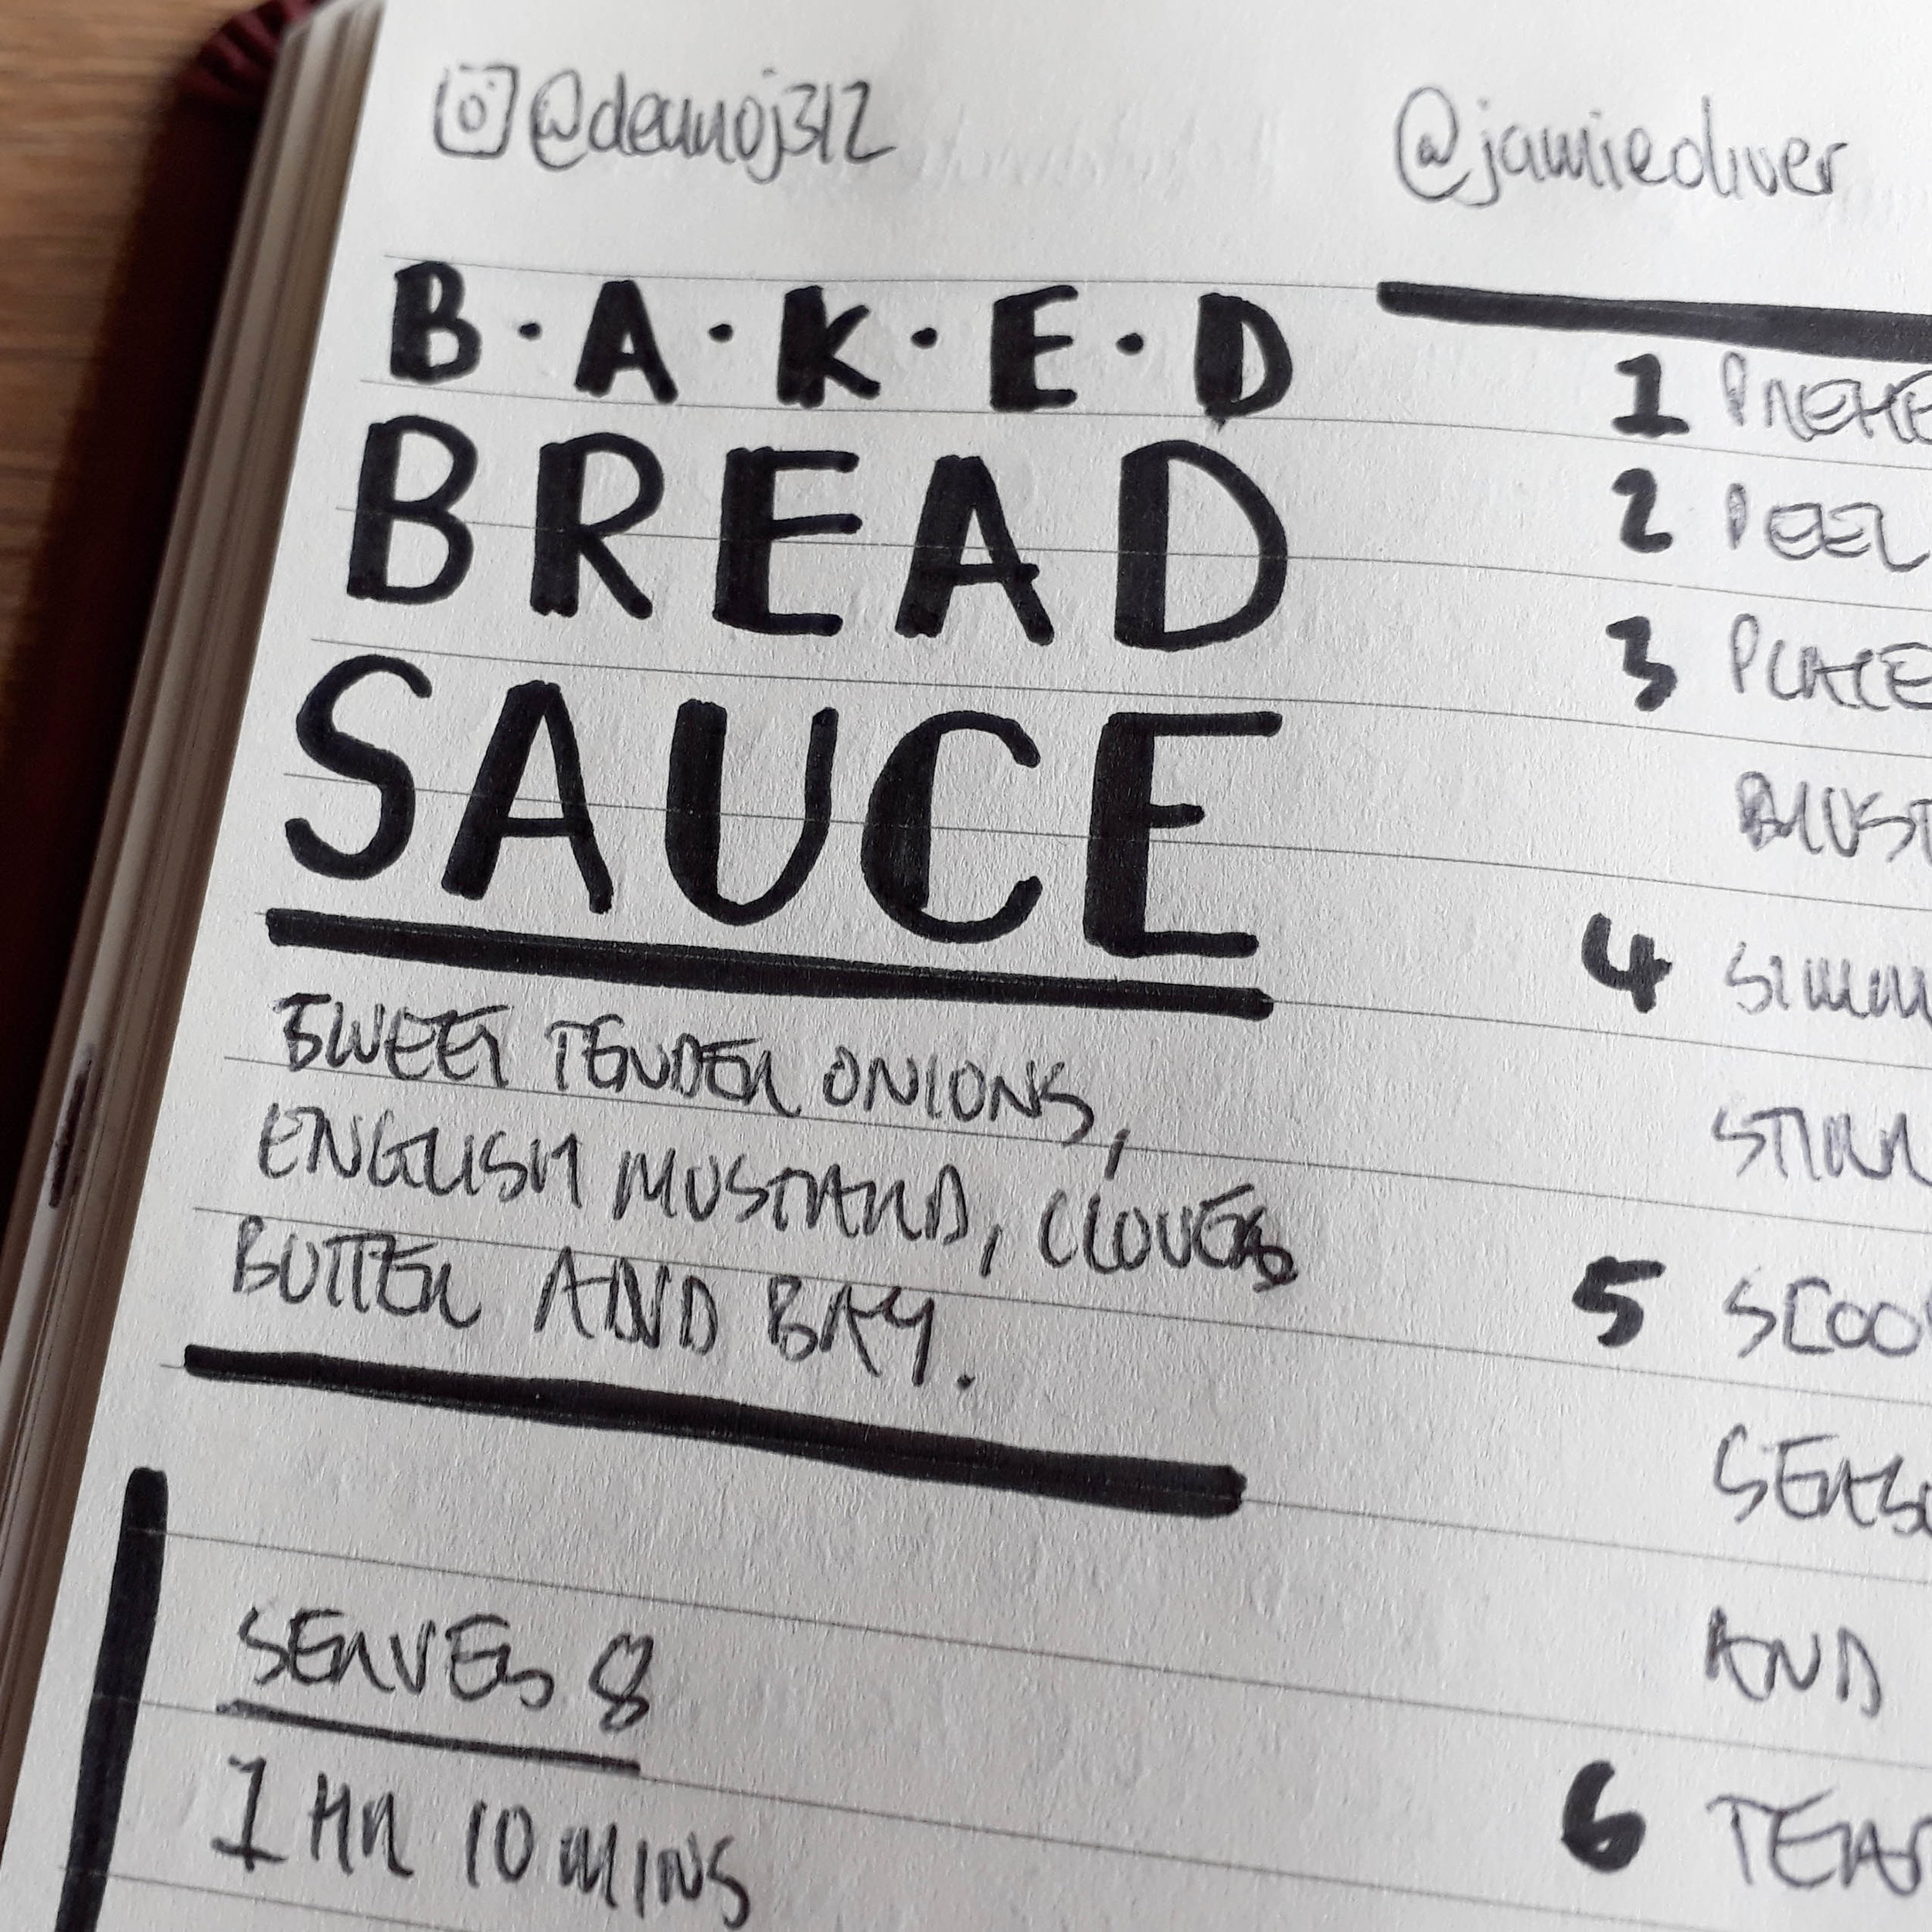 @deanoj312
@jamieoliver
B·A·K·E·D
BREAD
SAUCE
SWEET TENDER ONIONS,
ENGLISH MUSTARD, CLOVES
BUTTER AND BAY.
SERVES 8
1 HR 10 MINS
1 PREHE
2 PEEL
3 PLACE
MUST
4 SIMM
STIRR
5 SCOO
SEASO
AND
6 TEAR